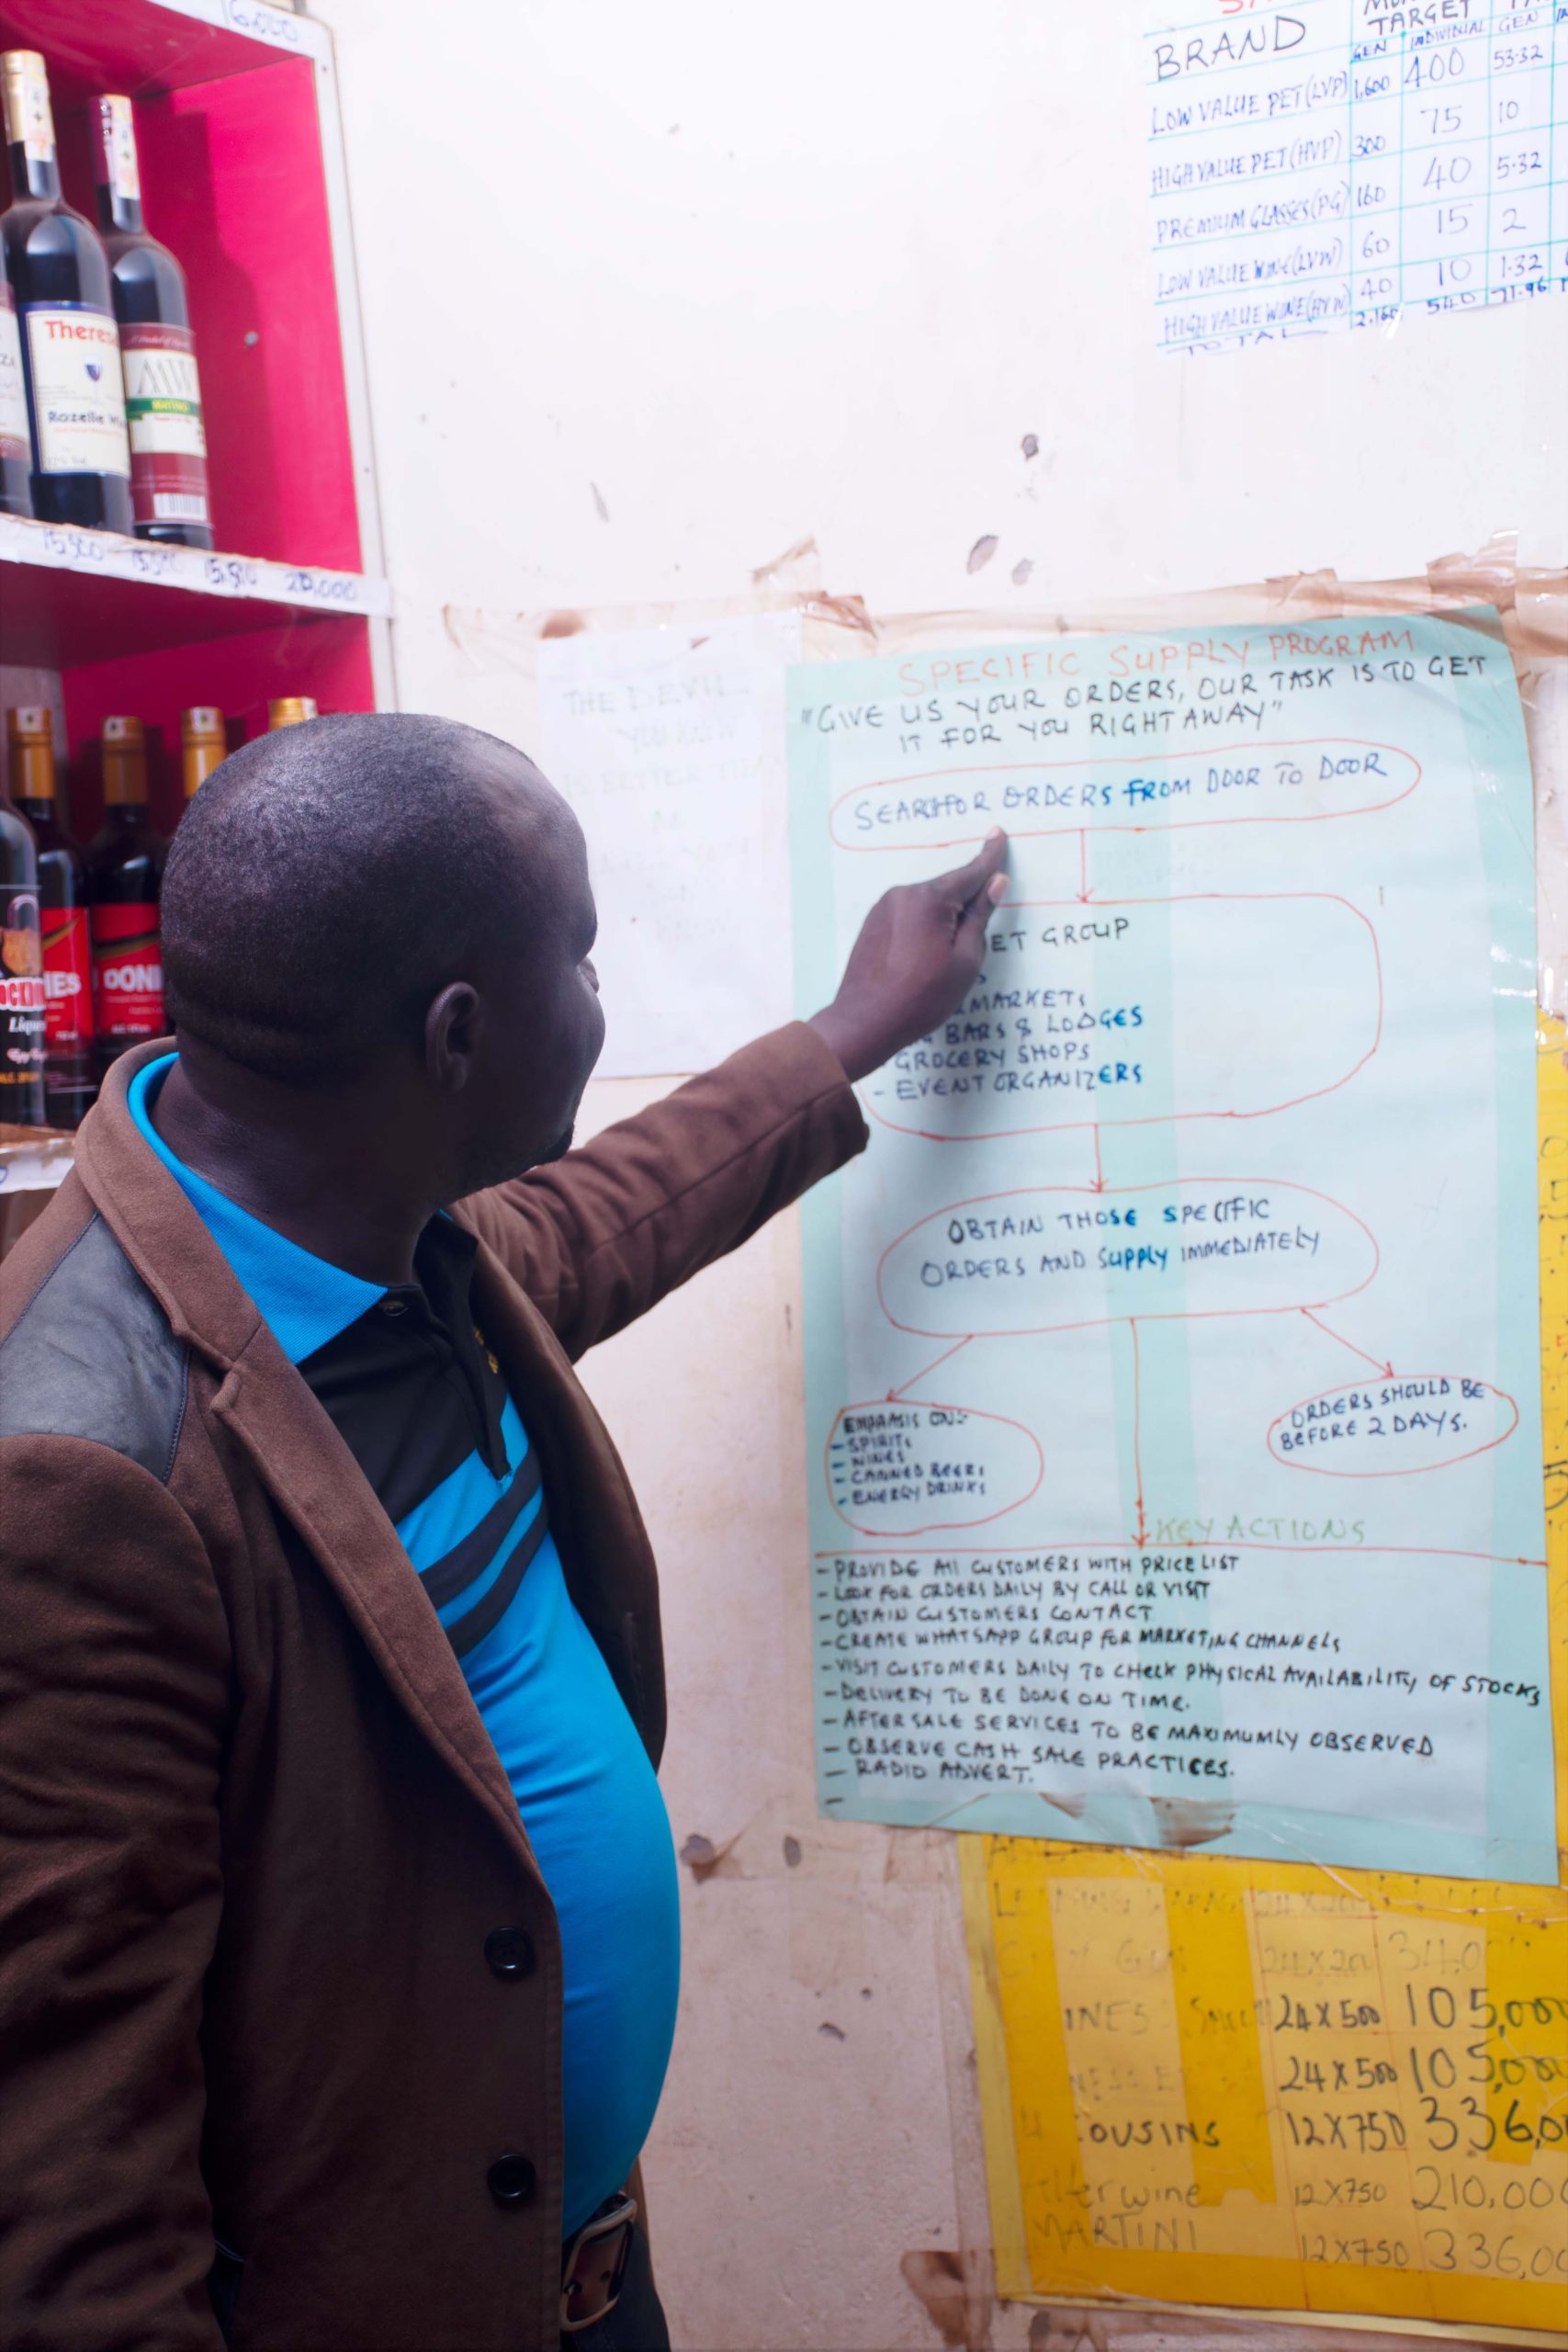 6,000
Theres
Rozelle
15,500 15,500 20,000
OONI
IES
Lique
BRAND
TARGET
GEN INDIVIDUAL GEN
LOW VALUE PET (LVP) 1,600 400 53.32
HIGH VALUE PET (HVP) 300 75 10
PREMIUM GLASSES (PG) 160 40 5.32
LOW VALUE WINE (LVW) 60 15 2
HIGH VALUE WINE (HVW) 40 10 1.32
TOTAL 2,160 540 71.96
THE DEVIL
YOU KNOW
IS BETTER THAN
SPECIFIC SUPPLY PROGRAM
"GIVE US YOUR ORDERS, OUR TASK IS TO GET
IT FOR YOU RIGHT AWAY"
SEARCH FOR ORDERS FROM DOOR TO DOOR
ET GROUP
MARKETS
BARS & LODGES
GROCERY SHOPS
- EVENT ORGANIZERS
OBTAIN THOSE SPECIFIC
ORDERS AND SUPPLY IMMEDIATELY
EMPHASIS ON:-
- SPIRITS
- WINES
- CANNED BEERS
- ENERGY DRINKS
ORDERS SHOULD BE
BEFORE 2 DAYS.
KEY ACTIONS
- PROVIDE All CUSTOMERS WITH PRICE LIST
- LOOK FOR ORDERS DAILY BY CALL OR VISIT
- OBTAIN CUSTOMERS CONTACT
- CREATE WHATSAPP GROUP FOR MARKETING CHANNELS
- VISIT CUSTOMERS DAILY TO CHECK PHYSICAL AVAILABILITY OF STOCKS
- DELIVERY TO BE DONE ON TIME.
- AFTER SALE SERVICES TO BE MAXIMUMLY OBSERVED
- OBSERVE CASH SALE PRACTICES.
- RADIO ADVERT.
-
24X200
GIN 24X200 34,0
INES 24X500 105,000
24X500 105,000
COUSINS 12X750 336,0
wine 12X750 210,000
MARTINI 12X750 336,00